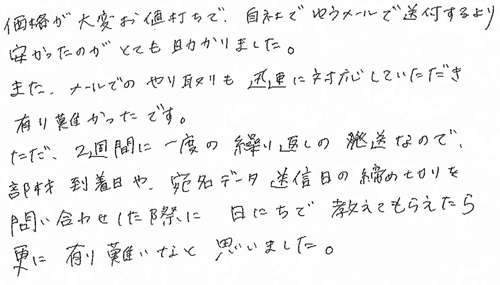 価格が大変お値打ちで、自社でゆうメールで送付するより
安かったのがとても助かりました。
また、メールでのやり取りも迅速に対応していただき
有り難かったです。
ただ、2週間に一度の繰り返しの発送なので、
部材到着日や、宛名データ送信日の締め切りを
問い合わせした際に日にちで教えてもらえたら
更に有り難いなと思いました。